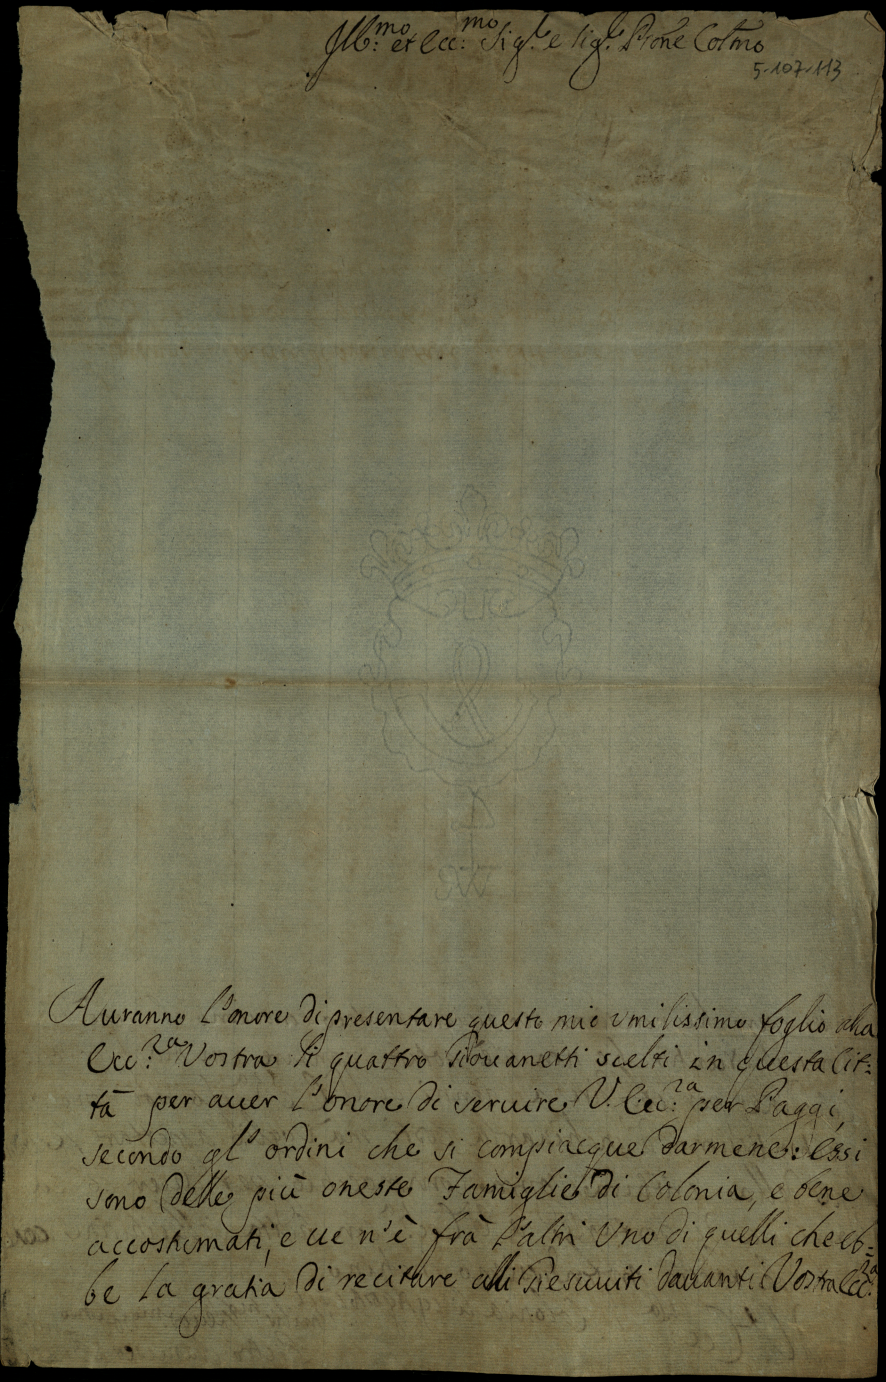 Ill:mo et Ecc:mo Sig.r e Sig.r P̃rone Colmo
5-107-113
Auranno l'onore di presentare questo mio vmilissimo foglio alla
Ecc:za Vostra li quattro Giouanetti scelti in questa Cit:
tà per auer l'onore di seruire V. Ecc:za per Paggi,
secondo gl'ordini che si compiacque darmene: Essi
sono delle più oneste Famiglie di Colonia, e bene
accostumati, e ue n'è frà l'altri Vno di quelli che eb=
be la gratia di recitare alli Giesuuiti dauanti Vostra Ecc:za